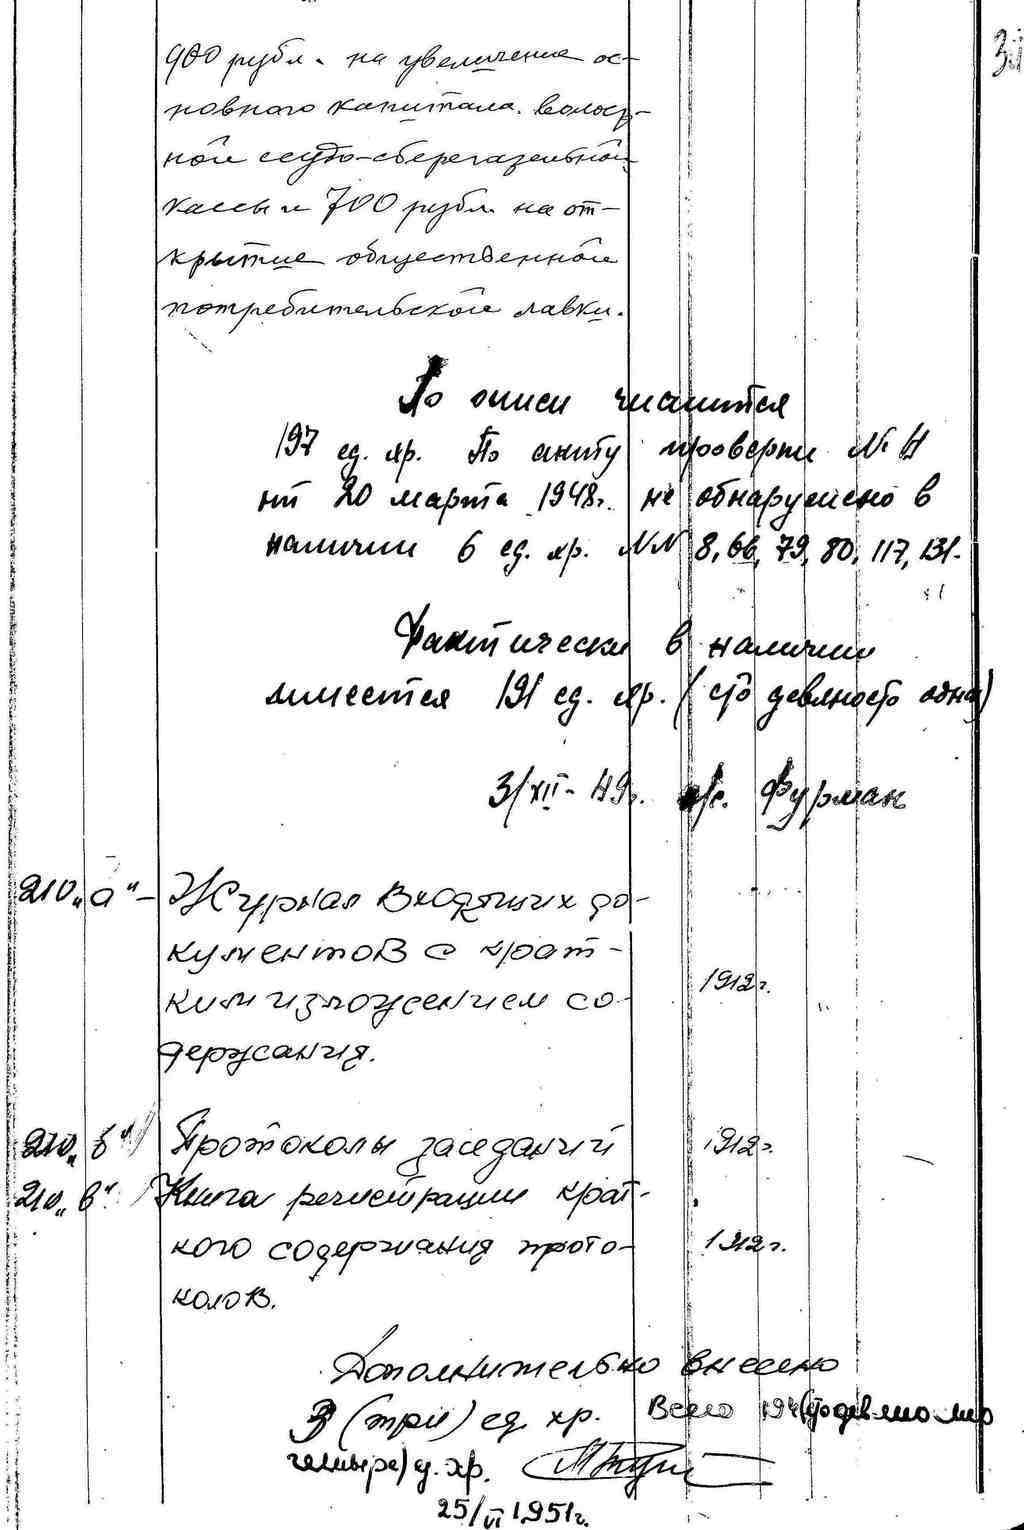 900 рубл. на увеличение ос-
новного капитала волост-
ной ссудо-сберегательной
кассы и 700 рубл. на от-
крытие общественной
потребительской лавки.
По описи числится
197 ед. хр. По акту проверки №
от 20 марта 1948г. не обнаружено в
наличии 6 ед. хр. NN 8, 66, 79, 80, 117, 131.
Фактически в наличии
имеется 191 ед. хр. (сто девяносто одна)
3/XII-49г. Фурман
210 „а“ - Журнал входящих до-
кументов с крат-
ким изложением со-
держания.
1912г.
210 „б“ Протоколы заседаний 1912г.
210 „в“ Книга регистрации крат-
кого содержания прото-
колов.
1912г.
Дополнительно внесено
3 (три) ед. хр. Всего 194 (сто девяносто
четыре) ед. хр.
25/VI 1951г.